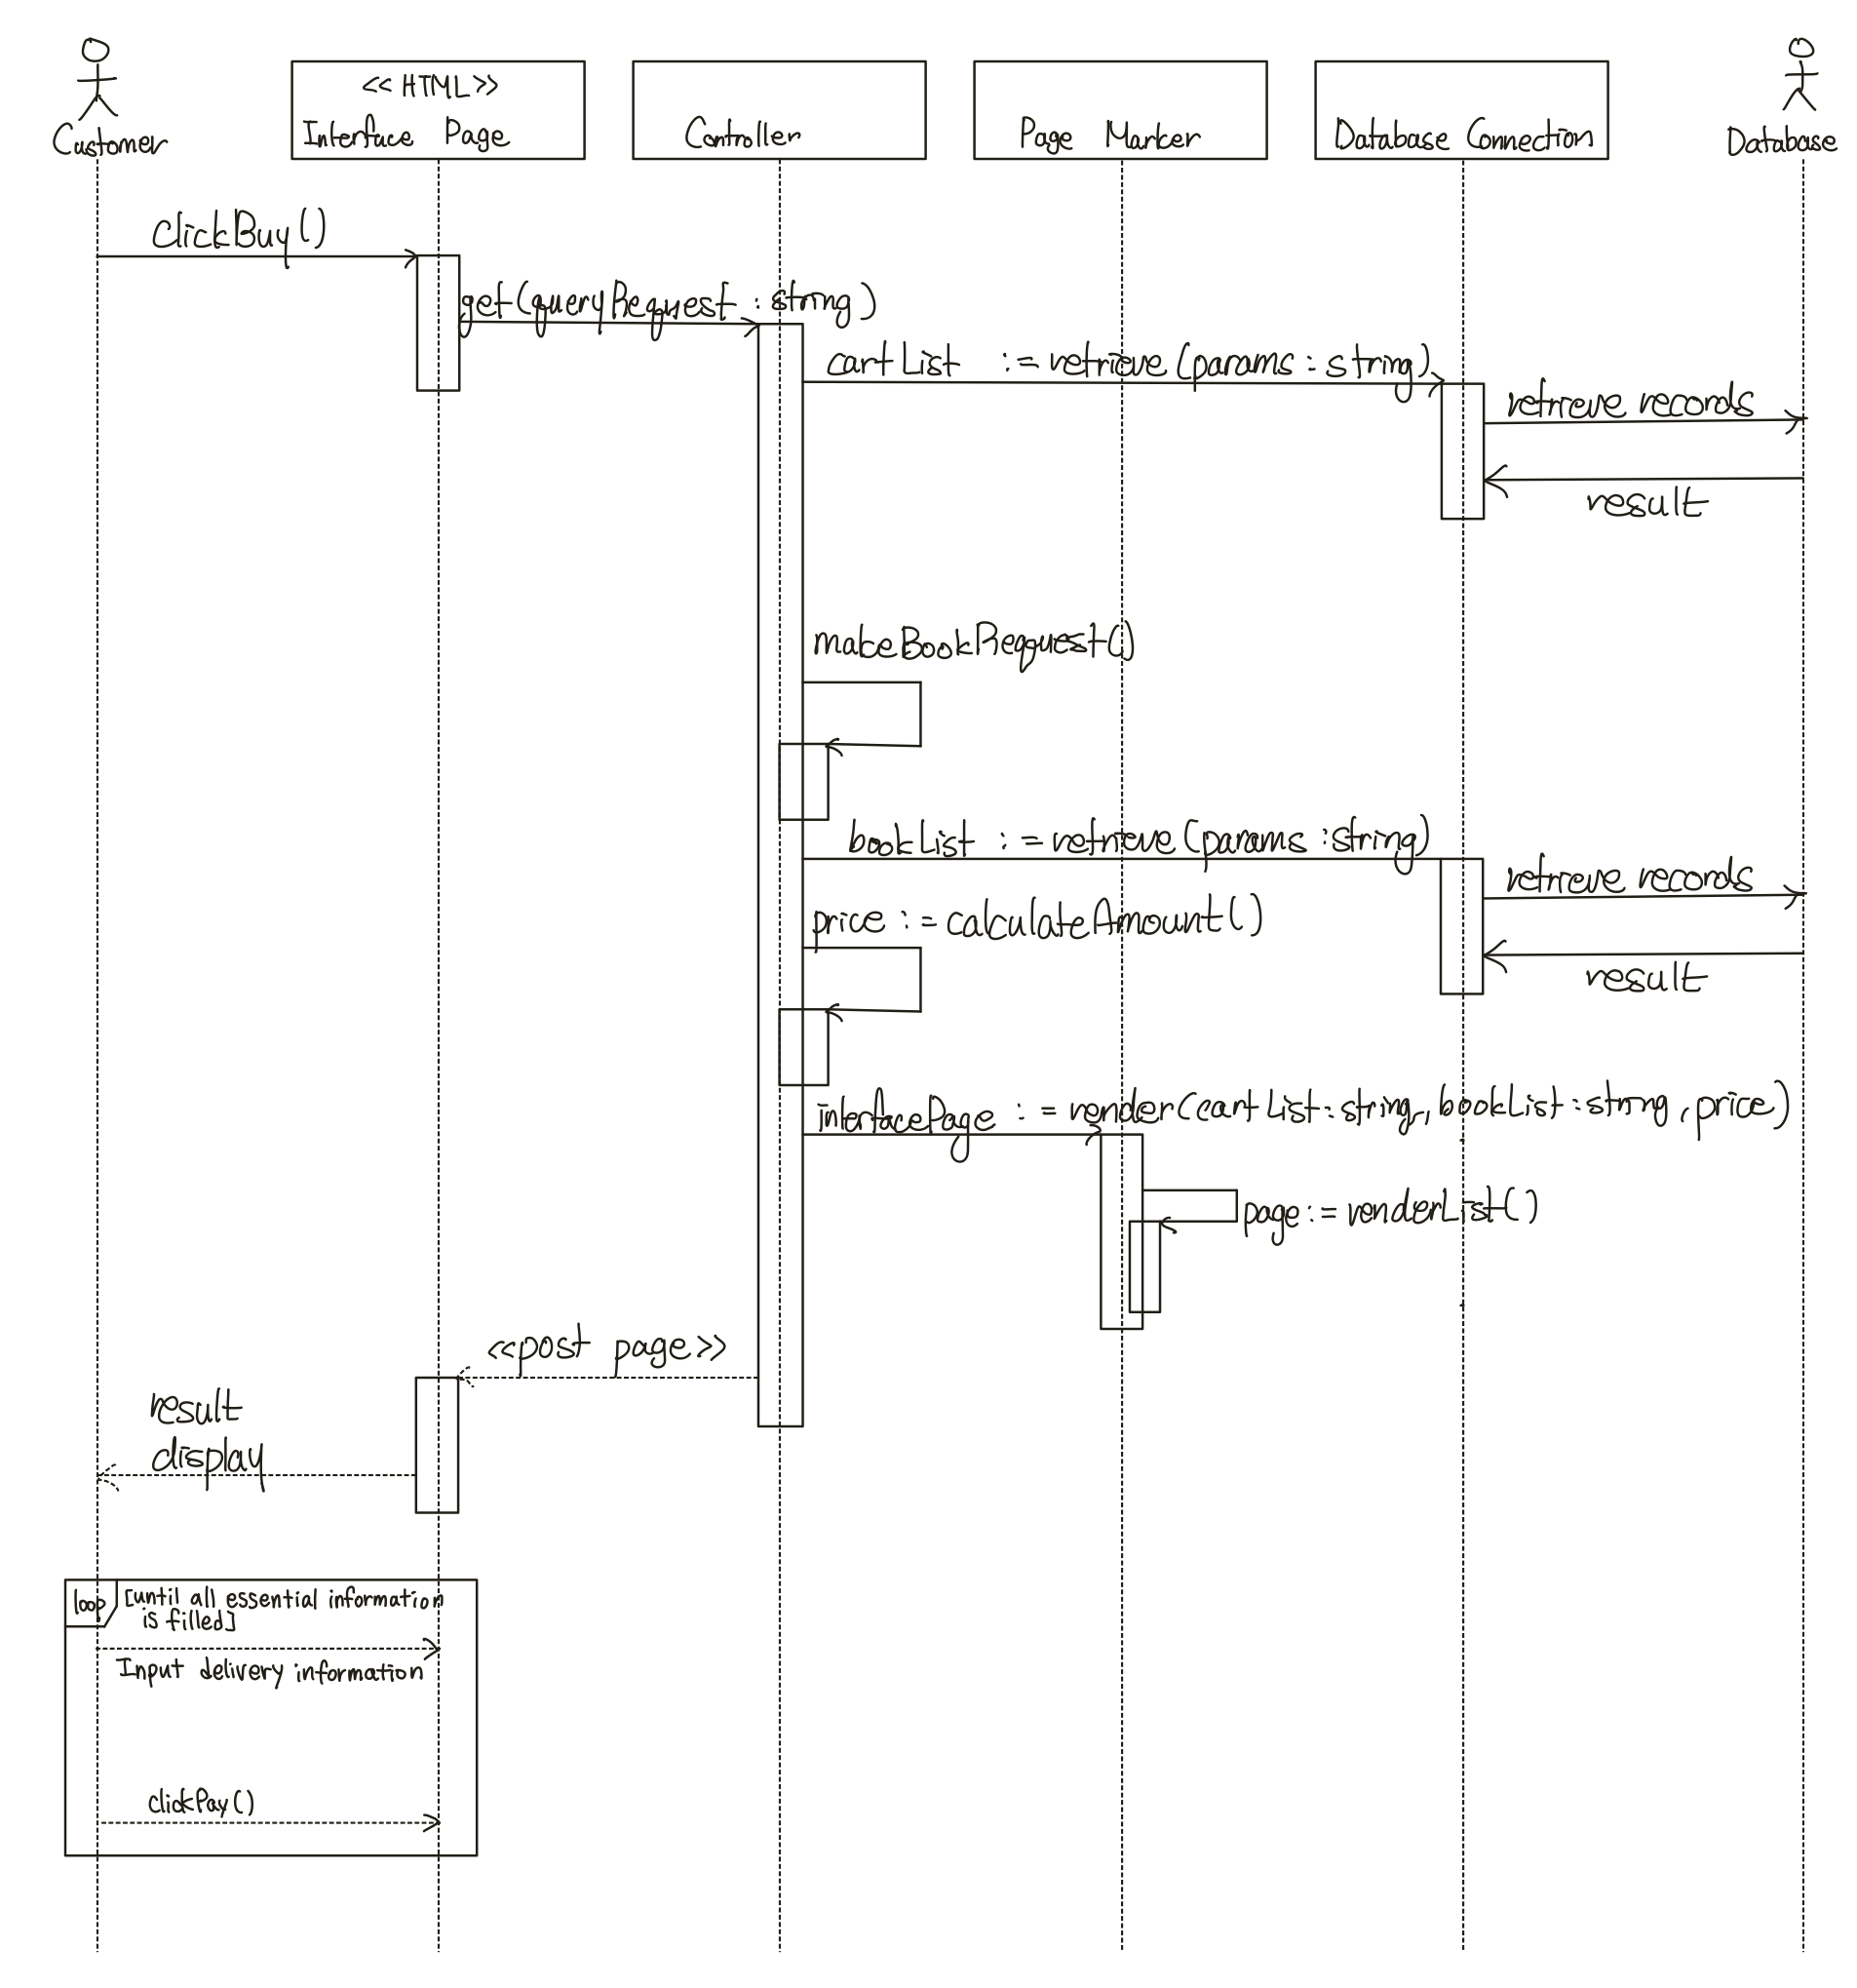 <<HTML>>
Customer
Interface Page
Controller
Page Marker
Database Connection
Database
clickBuy()
get(queryRequest : string)
cartList := retrieve(params : string)
retrieve records
result
makeBookRequest()
bookList := retrieve(params : string)
retrieve records
price := calculateAmount()
result
interfacePage := render(cartList : string, bookList : string, price)
page := renderList()
<<post page>>
result
display
loop [until all essential information
is filled]
Input delivery information
clickPay()